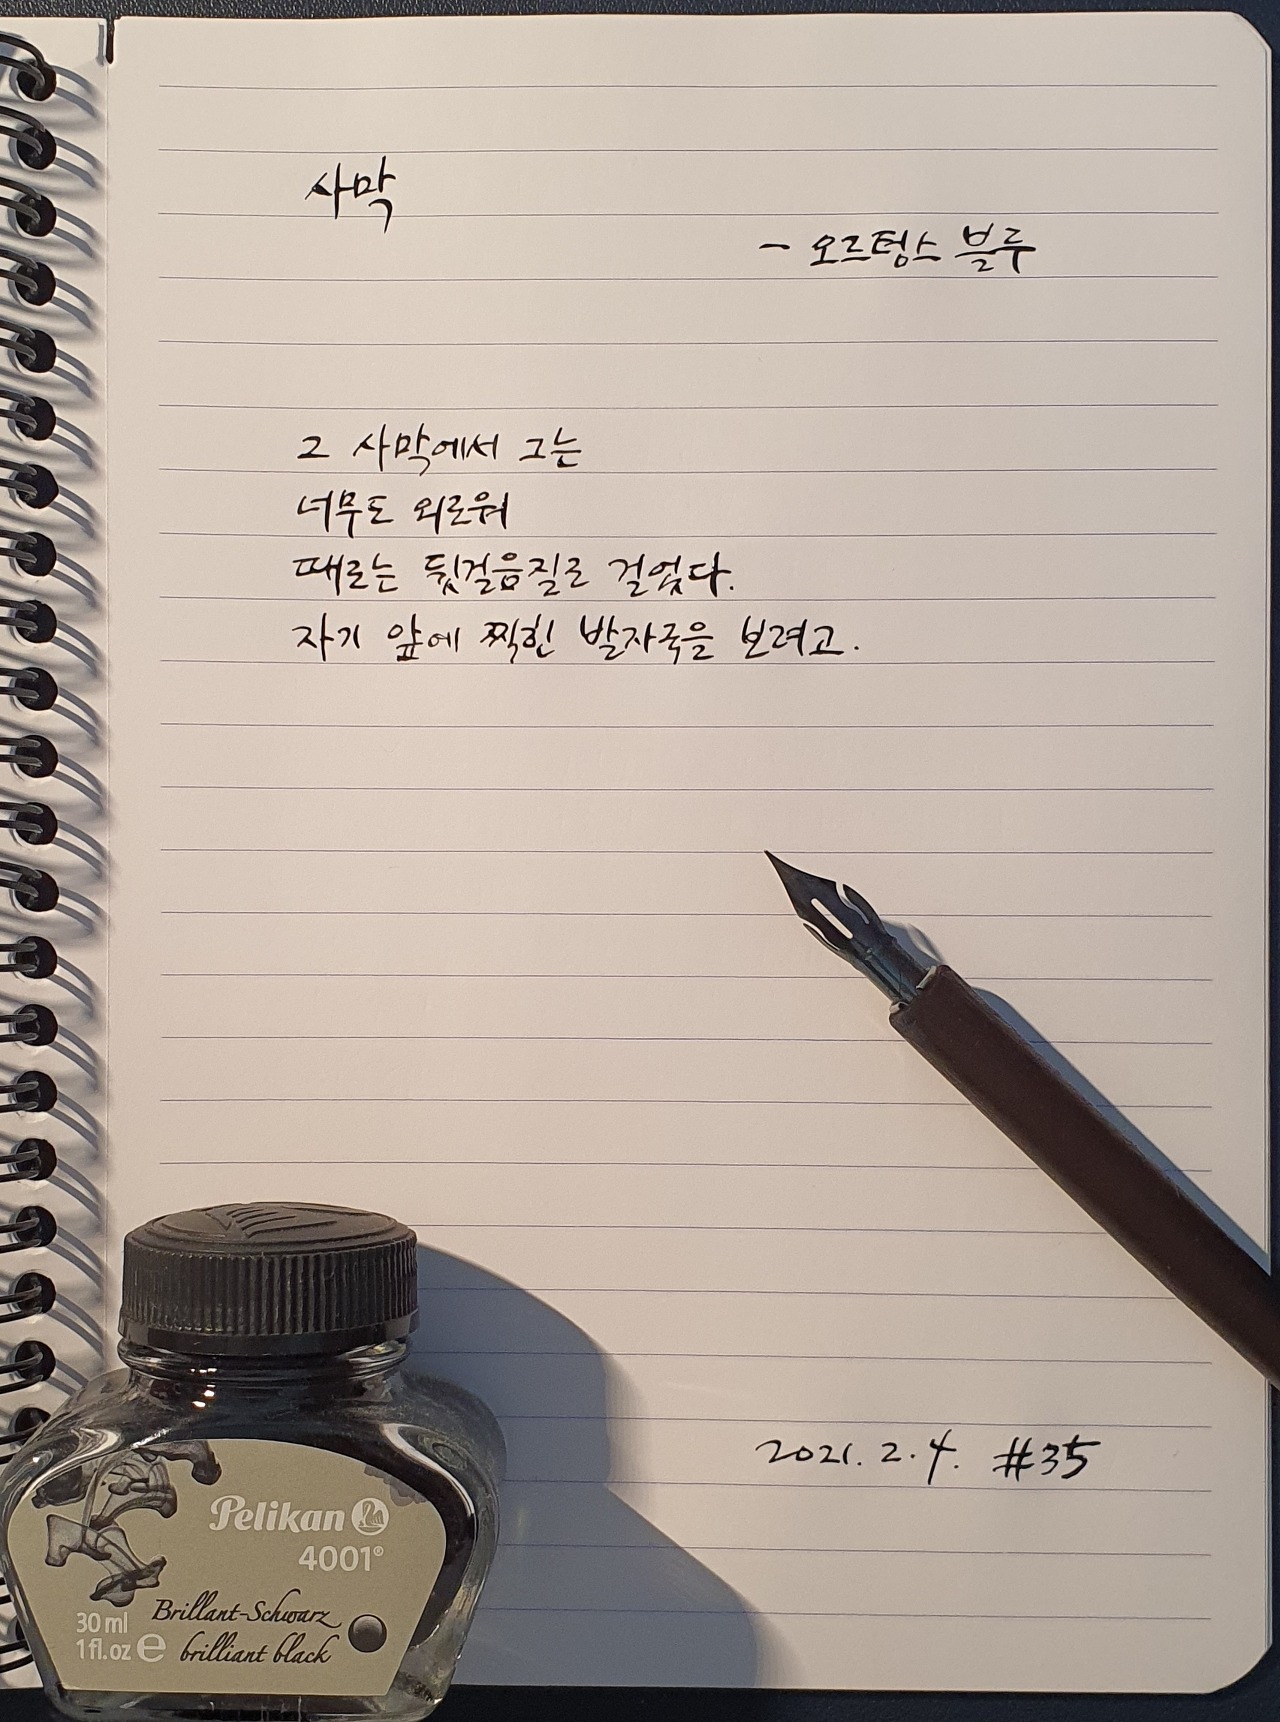 사막
- 오르텅스 블루
그 사막에서 그는
너무도 외로워
때로는 뒷걸음질로 걸었다.
자기 앞에 찍힌 발자국을 보려고.
2021. 2. 4. #35
Pelikan
4001®
Brillant-Schwarz
30 ml
1 fl.oz e brilliant black